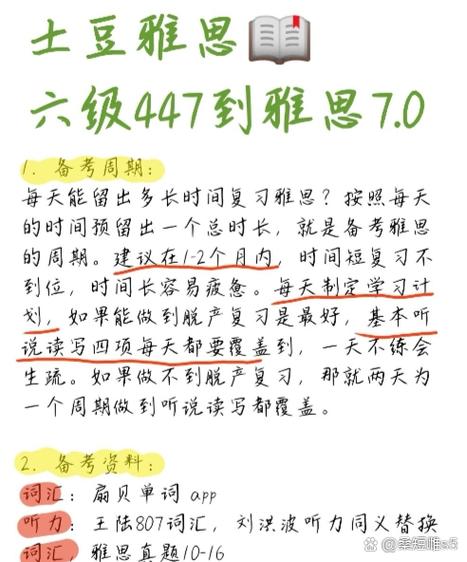 土豆雅思📖
六级447到雅思7.0
1. 备考周期:
每天能留出多长时间复习雅思?按照每天
的时间预留出一个总时长,就是备考雅思
的周期。建议在1-2个月内,时间短复习不
到位,时间长容易疲惫。每天制定学习计
划,如果能做到脱产复习是最好,基本听
说读写四项每天都要覆盖到,一天不练会
生疏。如果做不到脱产复习,那就两天为
一个周期做到听说读写都覆盖。
2. 备考资料:
词汇:扇贝单词 app
听力:王陆807词汇,刘洪波听力同义替换
词汇,雅思真题10-16